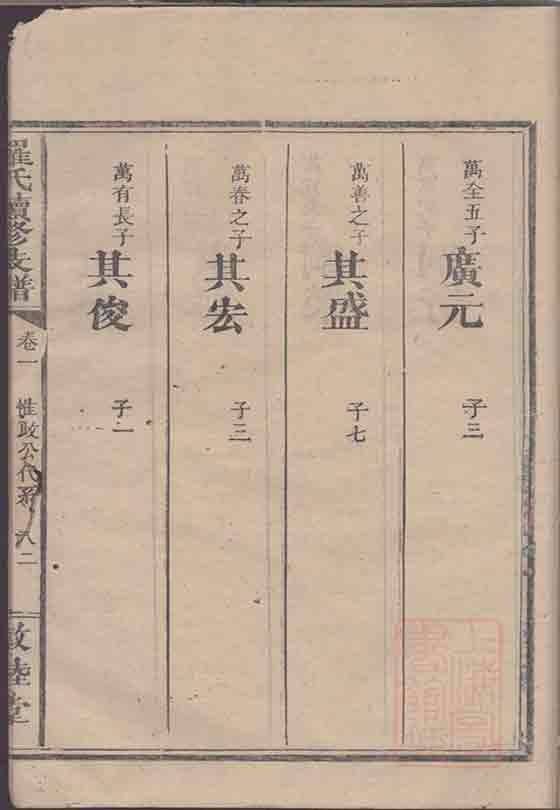 萬全五子
廣元
子三
萬善之子
其盛
子七
萬春之子
其宏
子三
萬有長子
其俊
子一
羅氏續修支譜
卷一
惟政公代系
八二
敦睦堂